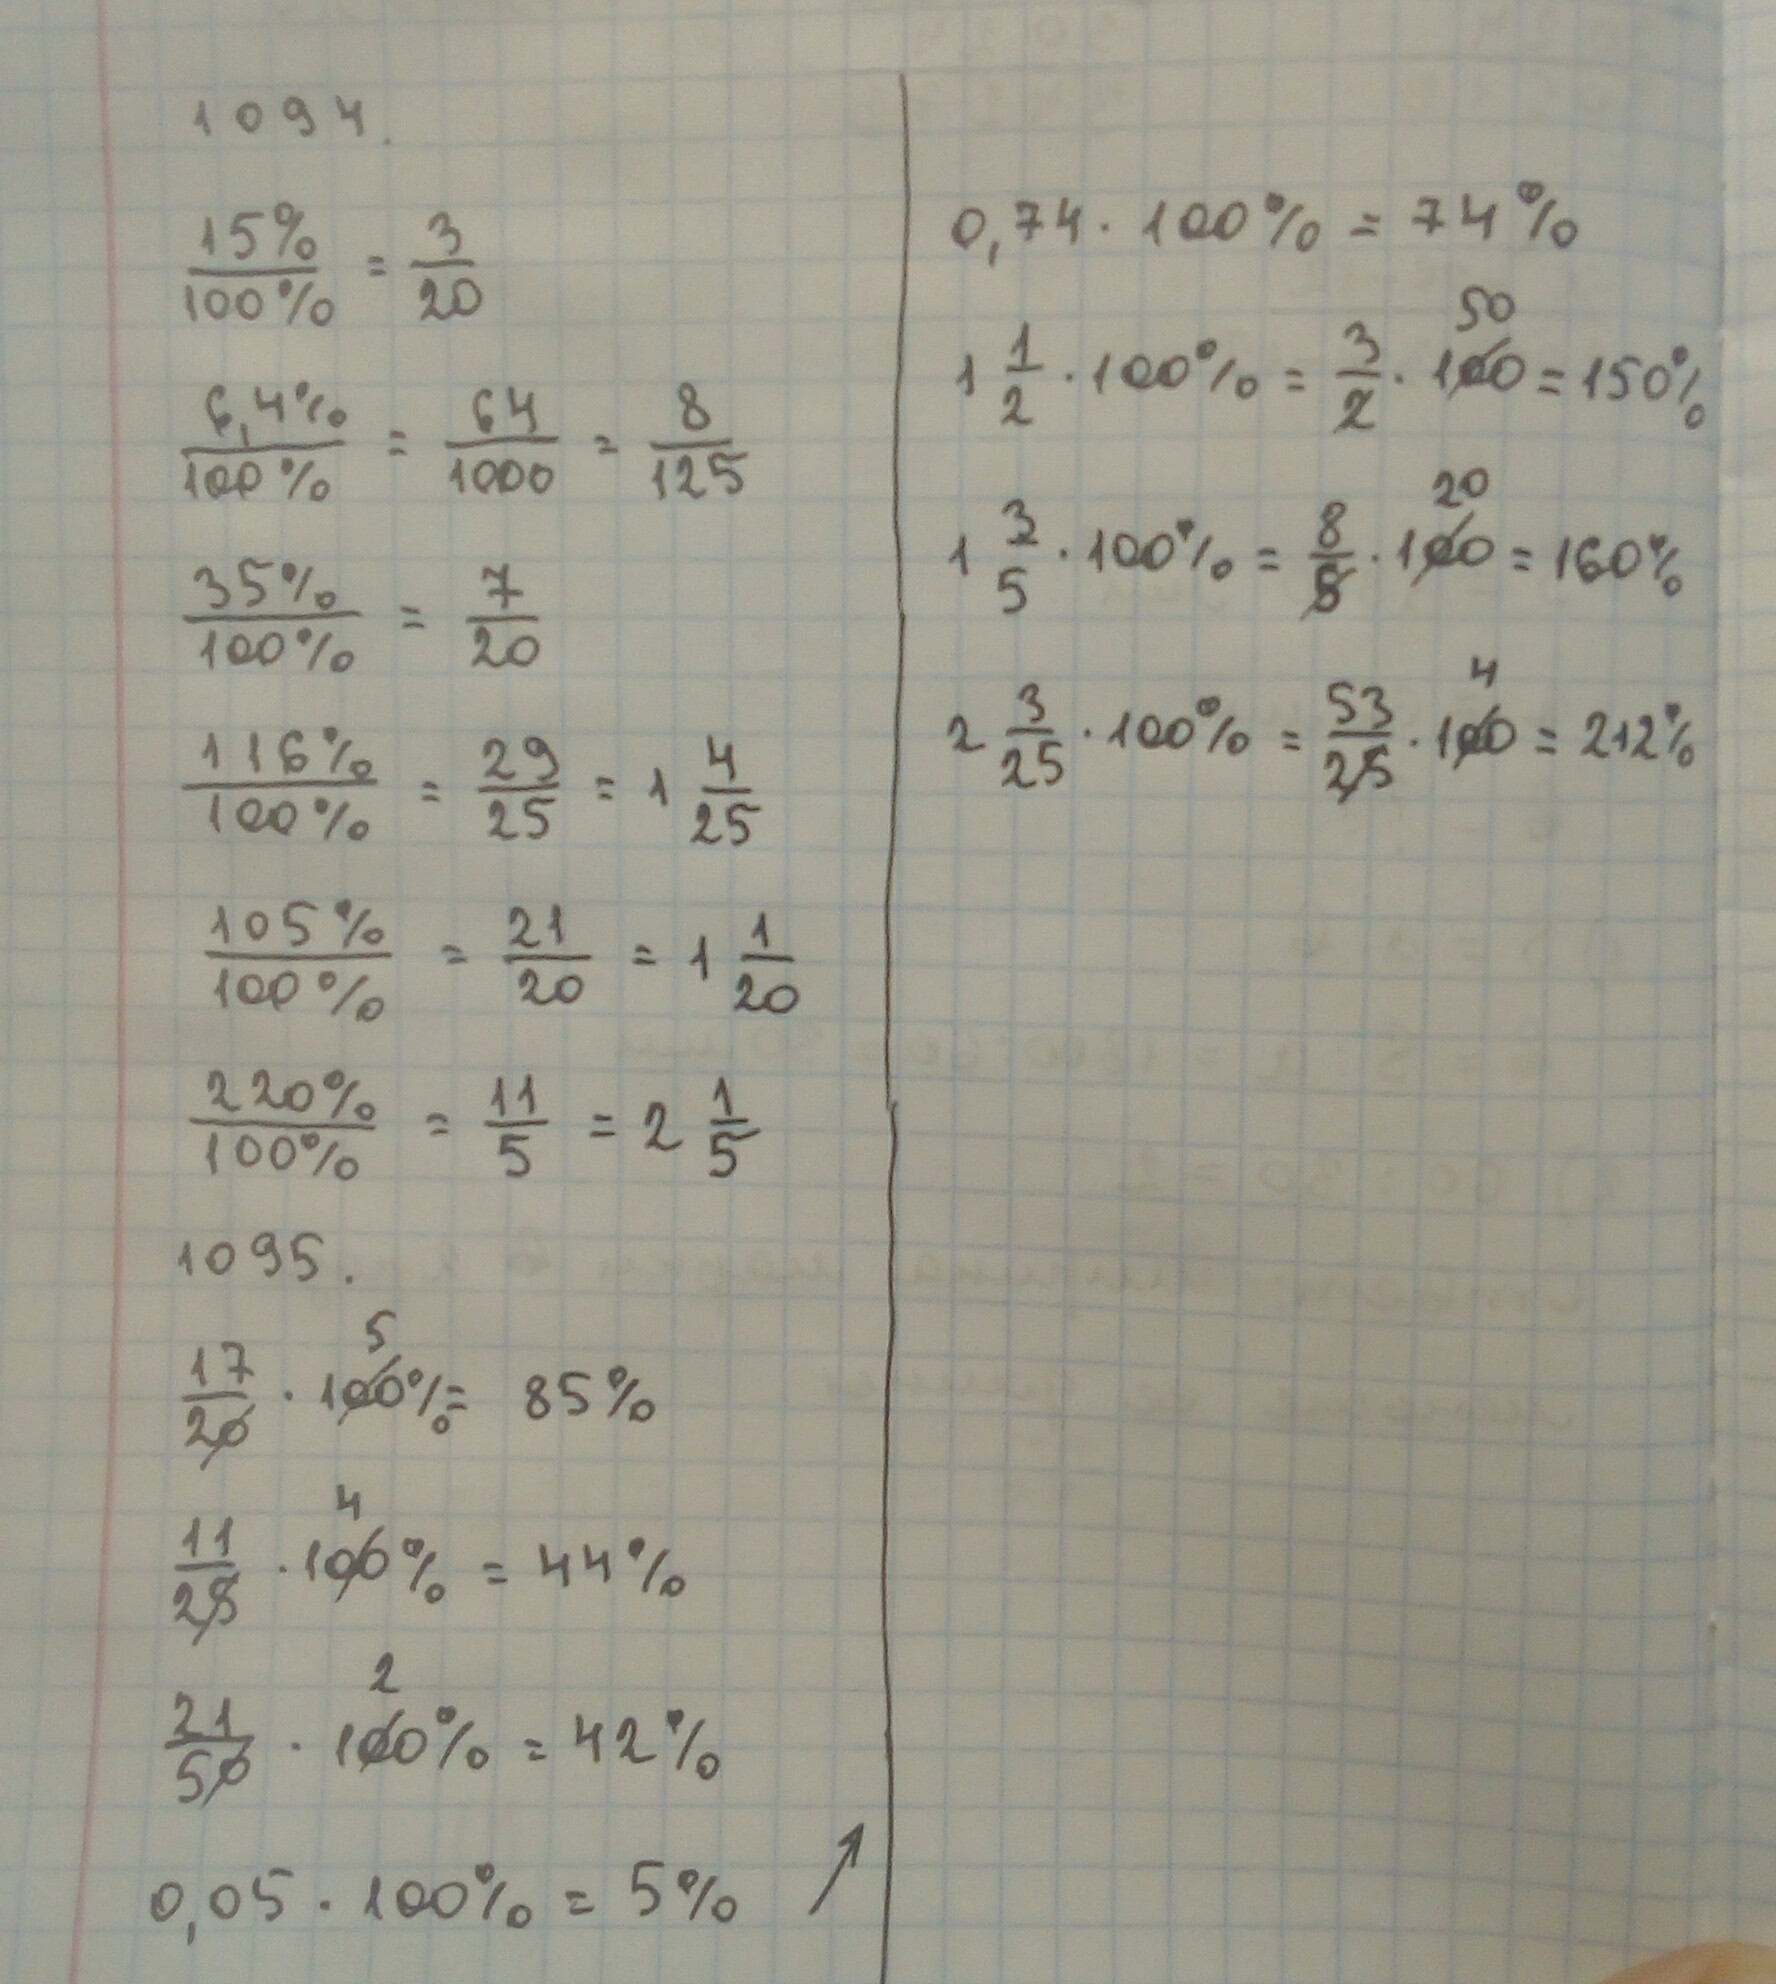 1094.
15%/100% = 3/20
6,4%/100% = 64/1000 = 8/125
35%/100% = 7/20
116%/100% = 29/25 = 1 4/25
105%/100% = 21/20 = 1 1/20
220%/100% = 11/5 = 2 1/5
1095.
5
17/20 · 100% = 85%
4
11/25 · 100% = 44%
2
21/50 · 100% = 42%
0,05 · 100% = 5%
0,74 · 100% = 74%
50
1 1/2 · 100% = 3/2 · 100 = 150%
20
1 3/5 · 100% = 8/5 · 100 = 160%
4
2 3/25 · 100% = 53/25 · 100 = 212%